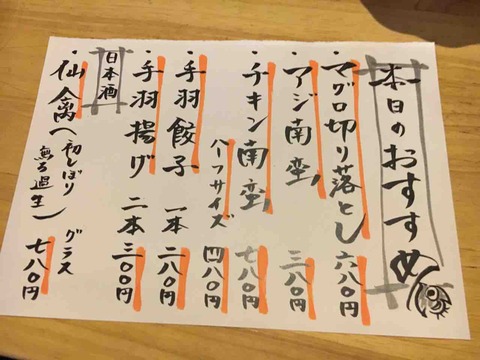 本日のおすすめ
・マグロ切り落とし 六八〇円
・アジ南蛮 三八〇円
・チキン南蛮 七八〇円
ハーフサイズ 四八〇円
・手羽餃子 一本 二八〇円
・手羽揚げ 二本 三〇〇円
日本酒
・仙禽(初しぼり
無ろ過生) グラス 七八〇円